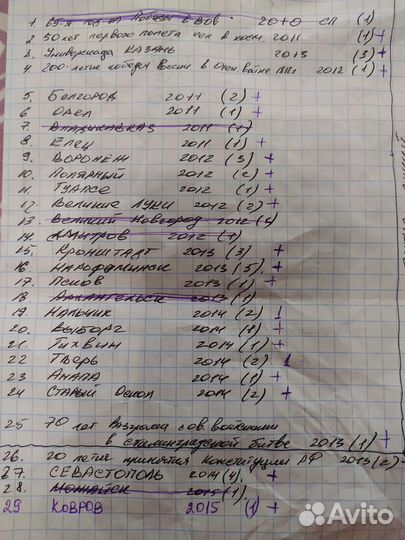 1. 65-я год-на Победы в ВОв 2010 СП (1)
2. 50 лет первого полета чел в косм. 2011 (1) +
3. Универсиада КАЗАНЬ 2013 (3) +
4. 200-летие победы России в Отеч войне 1812 2012 (1) +
5. Белгород 2011 (2) +
6. Орел 2011 (1) +
7. Владикавказ 2011 (1)
8. Елец 2011 (1) +
9. Воронеж 2012 (3) +
10. Полярный 2012 (2) +
11. Туапсе 2012 (1) +
12. Великие Луки 2012 (2) +
13. Великий Новгород 2012 (5)
14. Дмитров 2012 (1)
15. Кронштадт 2013 (3) +
16. Нарофоминск 2013 (5). +
17. Псков 2013 (1) +
18. Архангельск 2013 (1)
19. Нальчик 2014 (2) 1
20. Выборг 2014 (1) +
21. Тихвин 2014 (1) +
22 Тверь 2014 (2) 1
23 Анапа 2014 (1) +
24 Старый Оскол 2014 (2) +
25 70 лет Разгрома сов. войсками
в сталинградской битве 2013 (1) +
26. 20 летие принятия Конституции РФ 2013 (2)
27. СЕВАСТОПОЛЬ 2014 (4). +
28. Можайск 2015 (1)
29 КОВРОВ 2015 (1) +
Avito